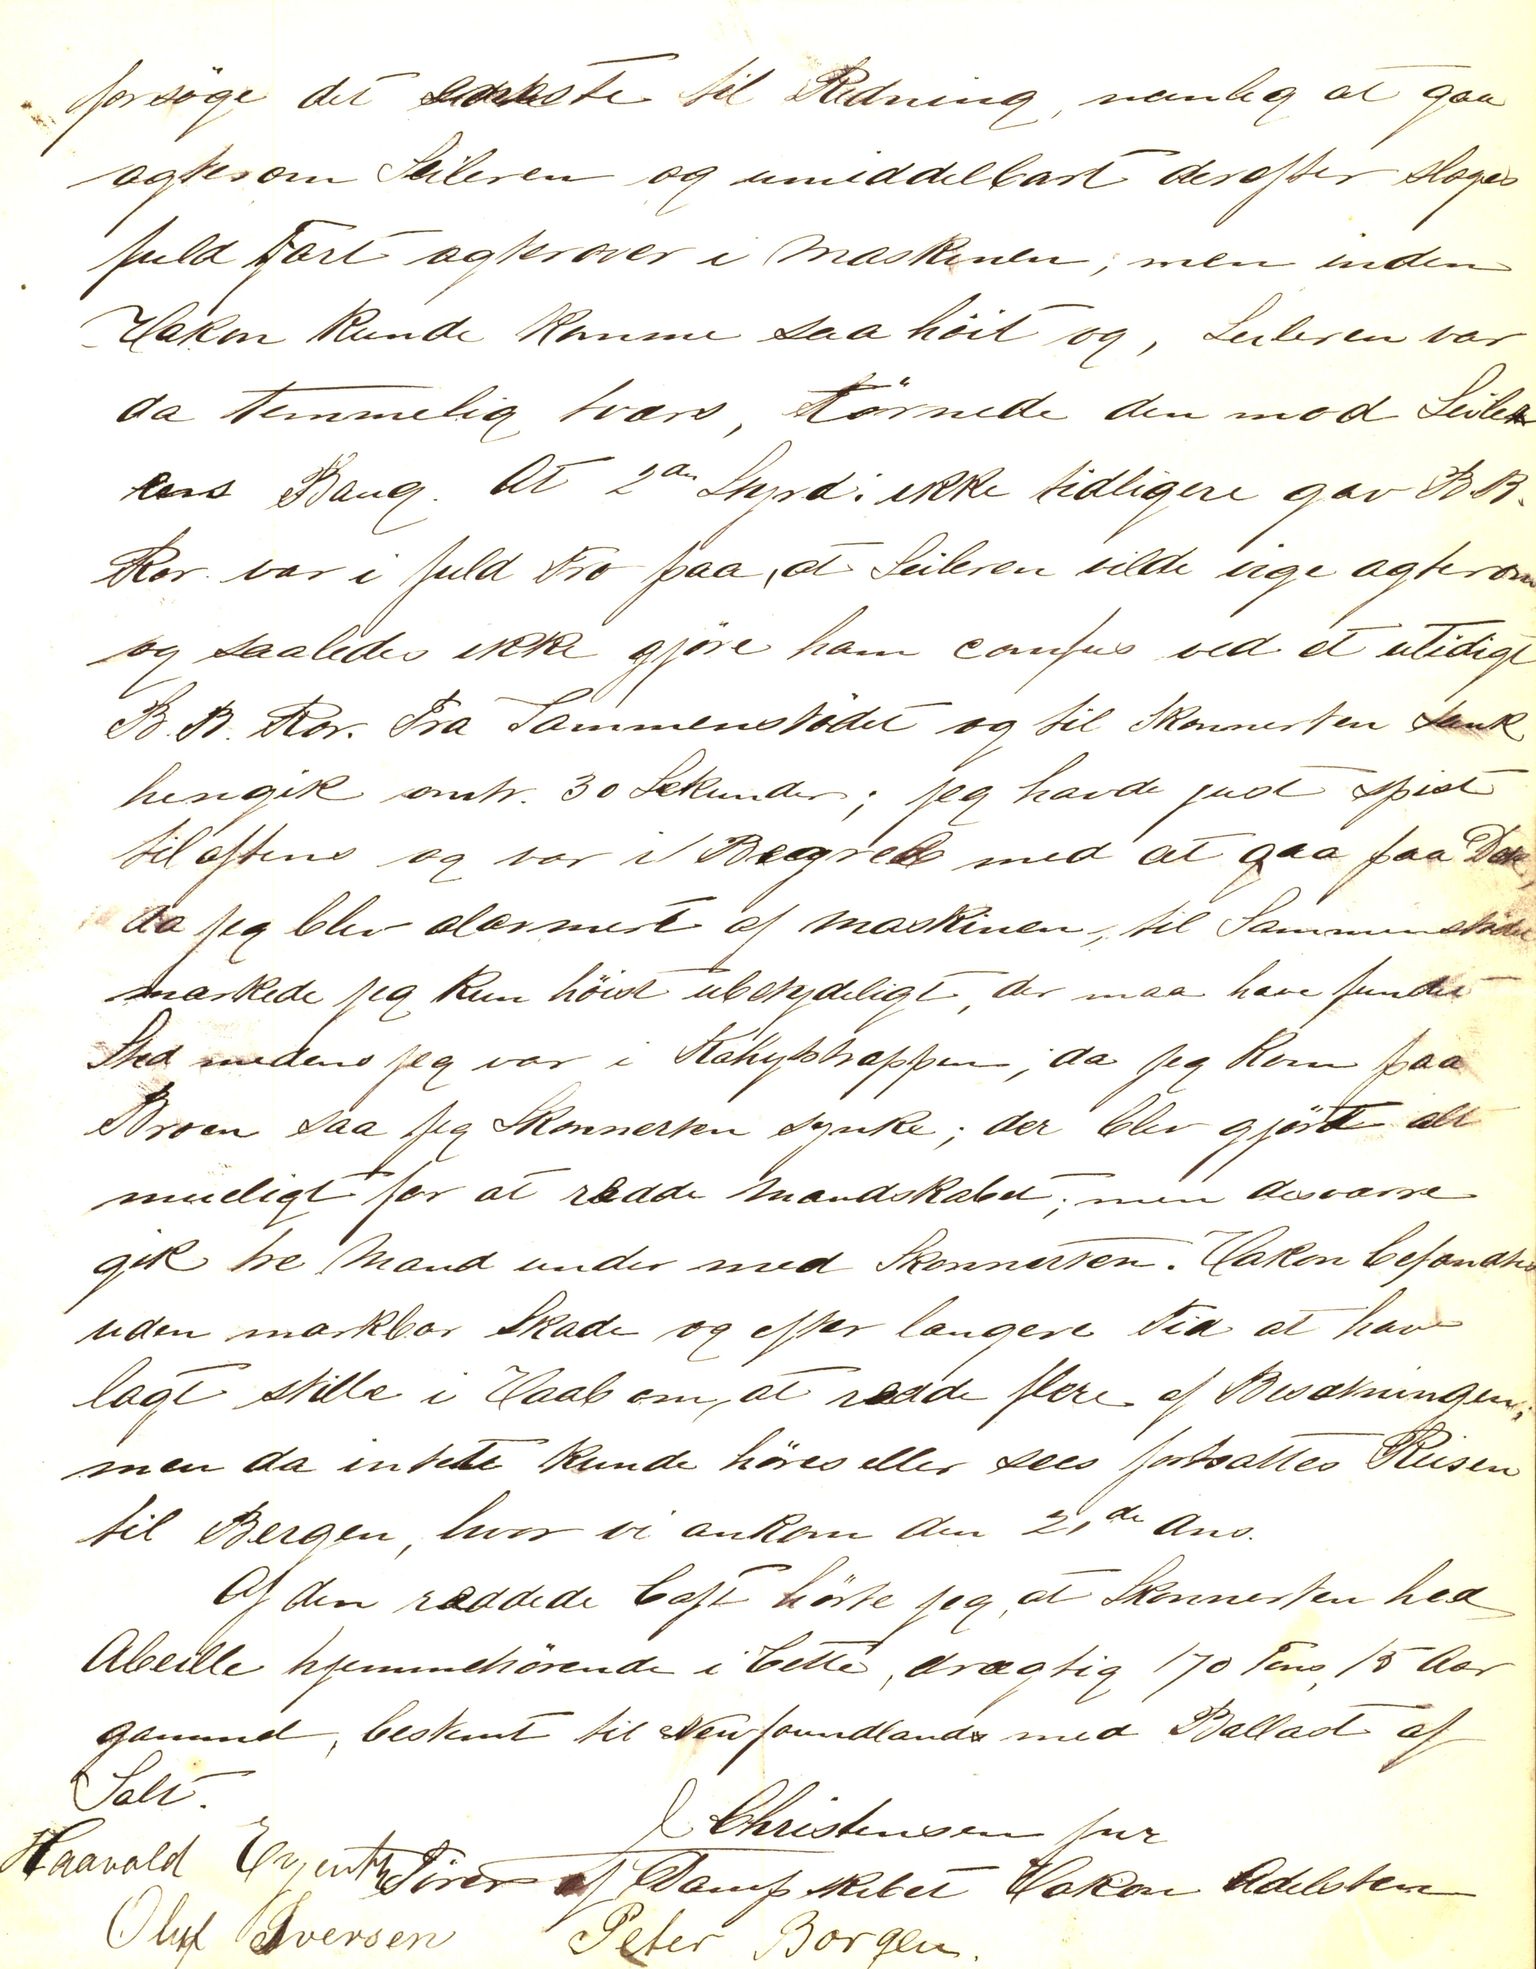 forsöge det sidste til Redning, nemlig at gaa
agterom Seileren og umiddelbart derefter sloges
fuld Fart agterover i Maskinen, men inden
Hakon kunde komme saa höit og, Seileren var
da temmelig tvers, törnede den mod Seiler-
ens Baug. At 2den Styrd: ikke tidligere gav B.B.
Ror. var i fuld Tro paa, at Seileren vilde vige agterom
og saaledes ikke gjöre ham confus ved et utidigt
B.B. Ror. Fra Sammenstödet og til Skonnerten sank
hengik omtr. 30 Sekunder; jeg havde just spist
tilaftens og var i Begreb med at gaa paa Dæk,
da jeg blev alarmert af Maskinen, til Sammenstödet
mærkede jeg kun höist ubetydeligt, der maa have fundet
Sted medens jeg var i Kahytstrappen; da jeg kom paa
Broen saa jeg Skonnerten synke; der blev gjört alt
mueligt for at redde Mandskabet; men desværre
gik tre Mand under med Skonnerten. Hakon befandtes
uden mærkbar Skade og efter længere Tid at have
lagt stille i Haab om, at redde flere af Besætningen;
men da intet kunde höres eller sees fortsattes Reisen
til Bergen, hvor vi ankom den 21de ds.
Af den reddede Capt hörte jeg, at Skonnerten hed
Abeille hjemmehörende i Cette, drægtig 170 Tons, 15 Aar
gammel, bestemt til Newfoundland med Ballast af
Salt.
J Christensen jur
Haavald
Förer af Dampskibet Hakon Adelsten
Oluf Iversen Peter Borgen.